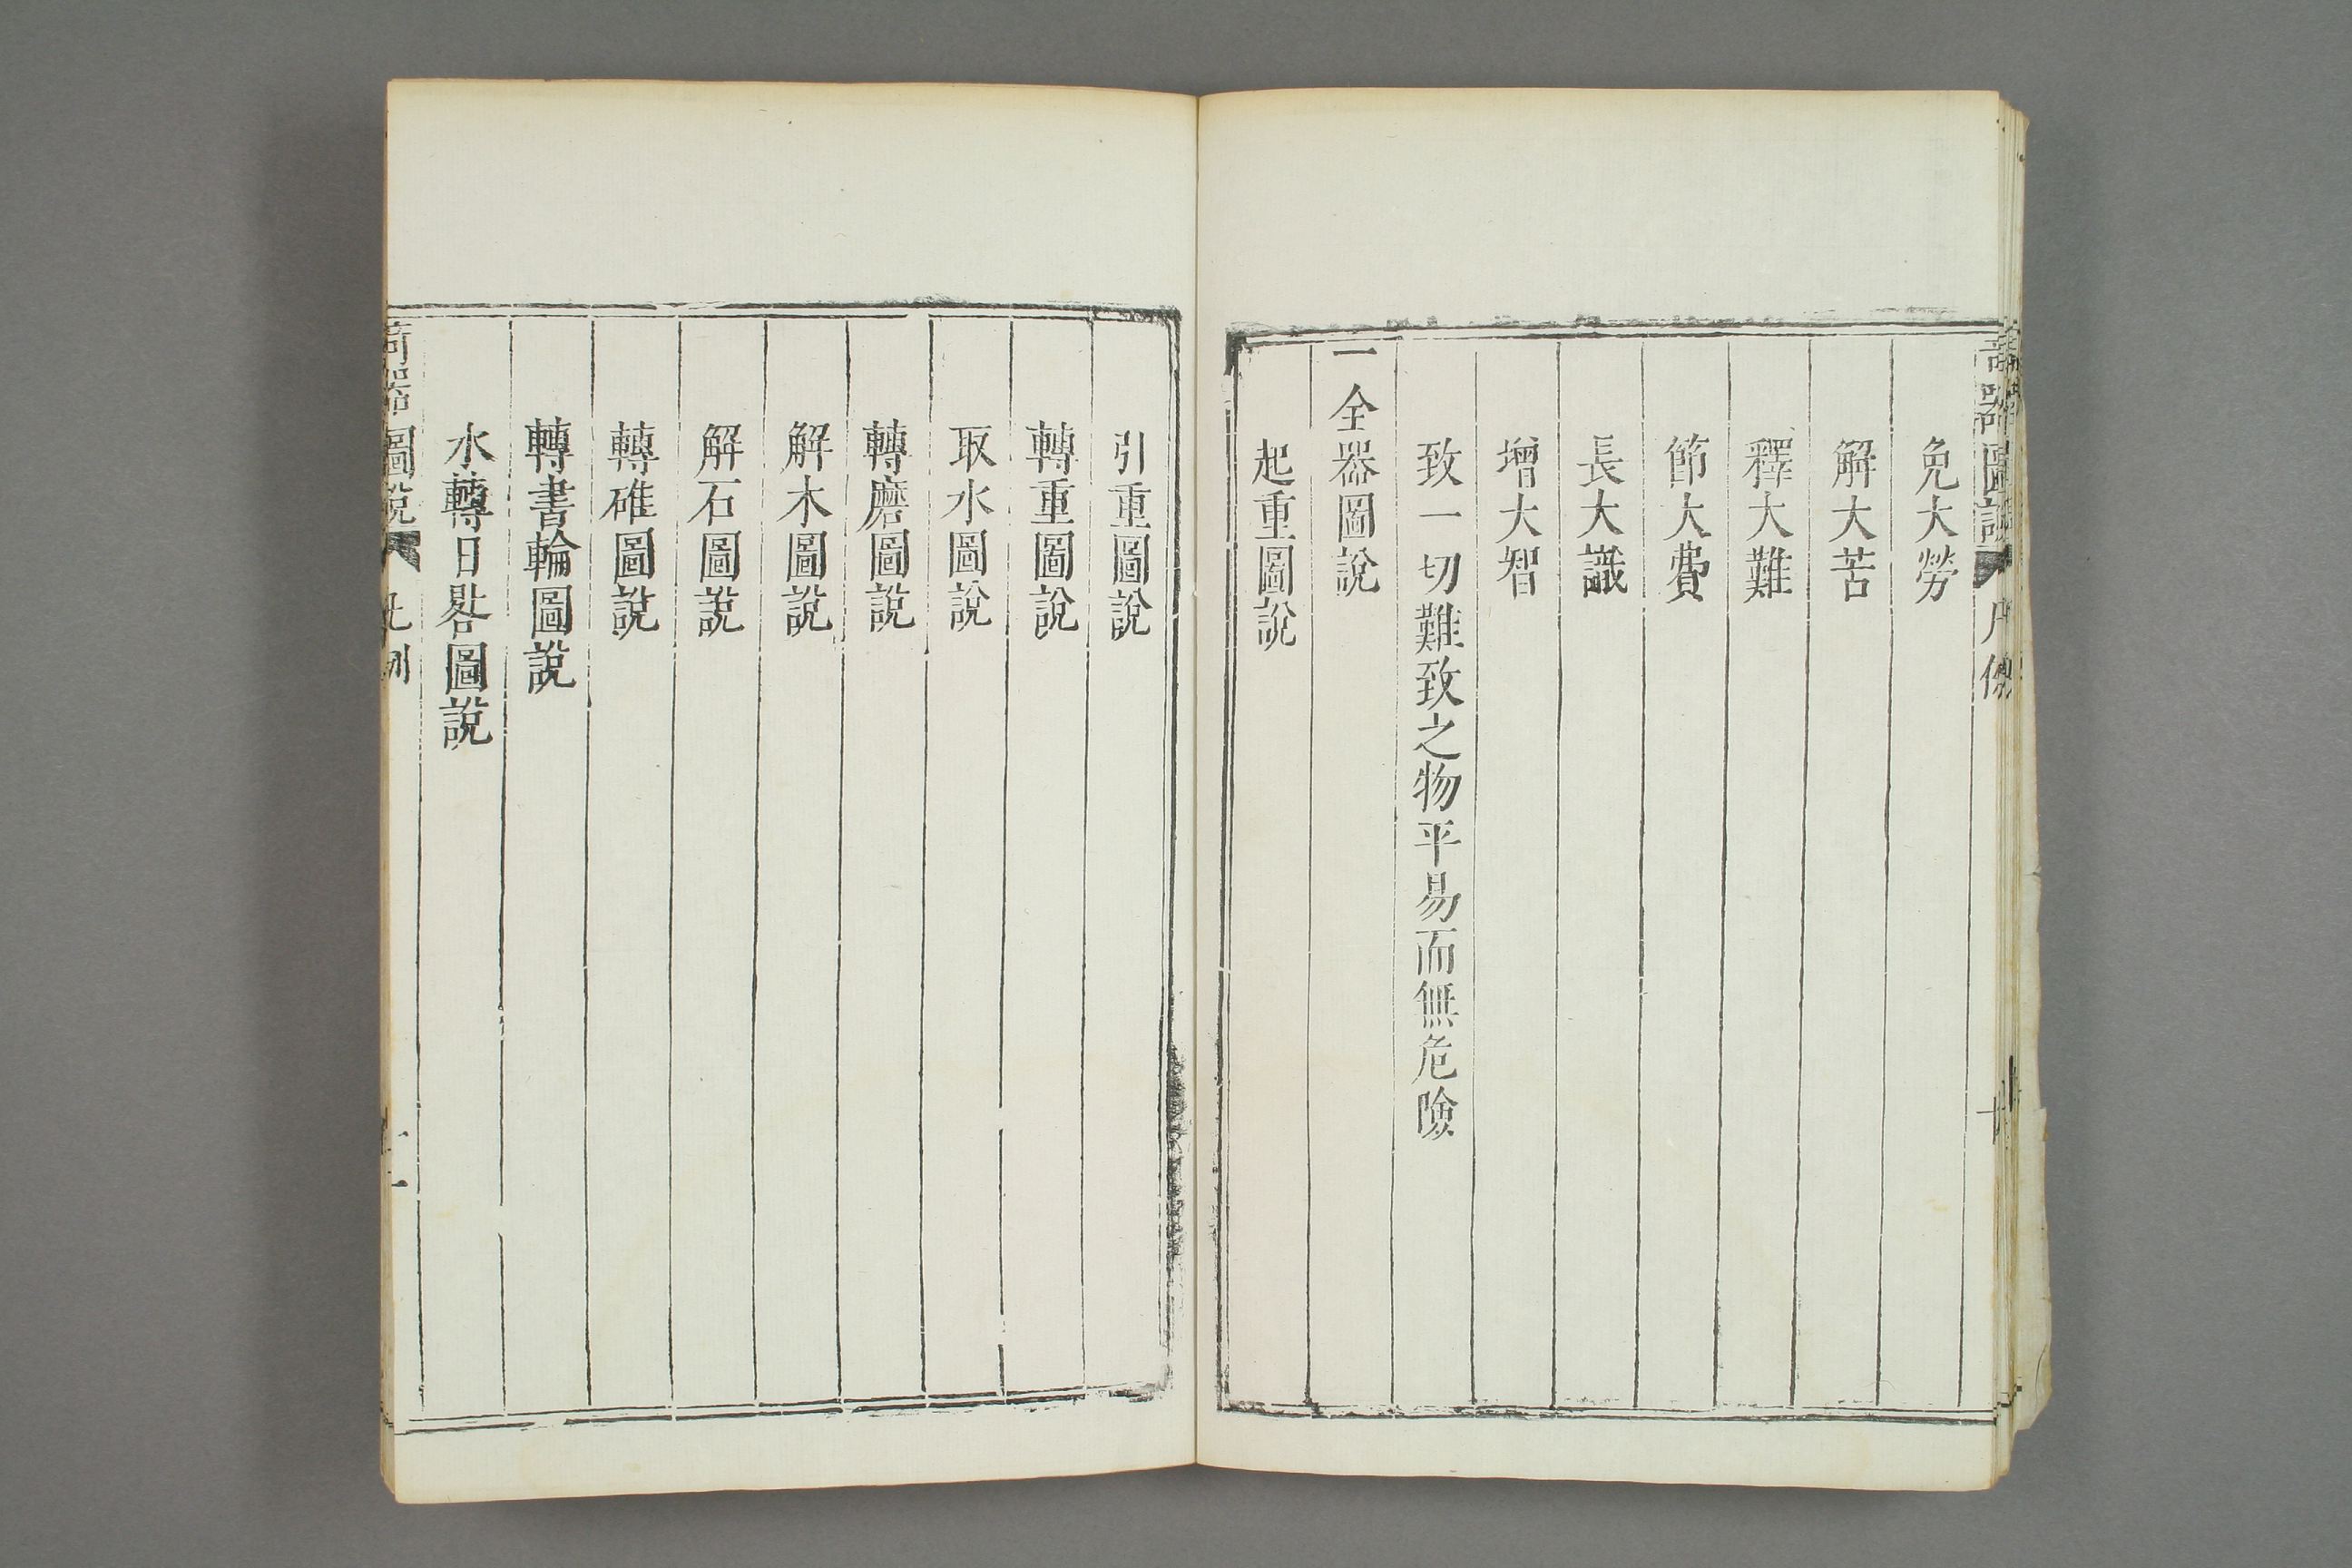 免大勞
解大苦
釋大難
節大費
長大識
增大智
致一切難致之物平易而無危險
一全器圖說
起重圖說
引重圖說
轉重圖說
取水圖說
轉磨圖說
解木圖說
解石圖說
轉碓圖說
轉書輪圖說
水轉日晷圖說